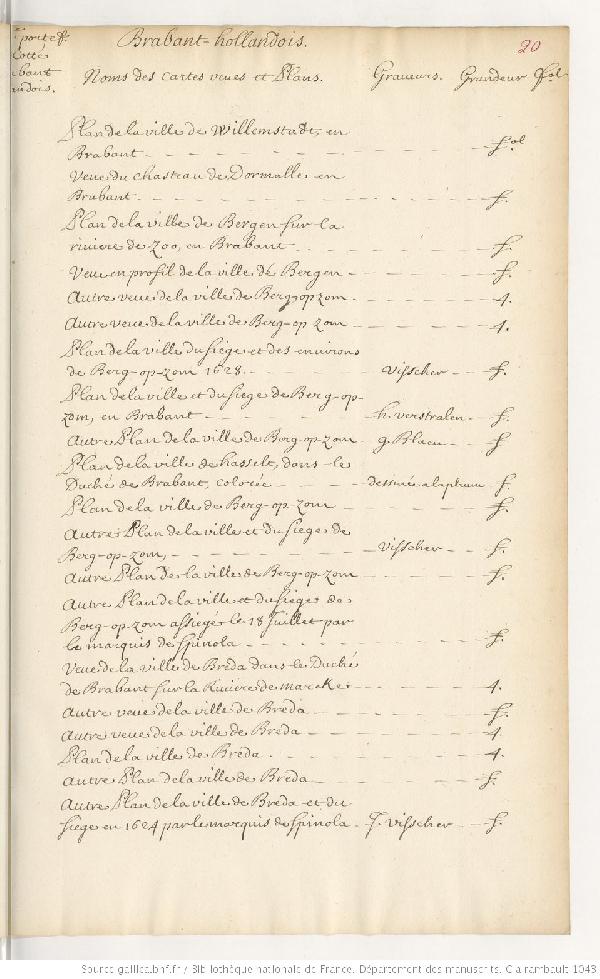 Brabant-hollandois.
20
Noms des cartes veues et Plans. Graveurs. Grandeur fol
Plan de la ville de Willemstadt, en
Brabant - fol
Veue du chasteau de Dormalle en
Brabant - f.
Plan de la ville de Bergen sur la
riviere de Zoo, en Brabant - f.
Veue en profil de la ville de Bergen - f.
Autre veue de la ville de Berg-op zom - 4.
Autre veue de la ville de Berg-op zom - 4.
Plan de la ville du siege et des environs
de Berg-op-zom 1628 - visscher - f.
Plan de la ville et du siege de Berg-op-
zom, en Brabant - h. verstralen - f.
Autre Plan de la ville de Berg-op-zom g. Blaeu - f
Plan de la ville de hasselt, dans le
Duché de Brabant, colorée - dessiné a la plume f.
Plan de la ville de Berg-op-zom - f.
Autre Plan de la ville et du siege de
Berg-op-zom, - visscher - f.
Autre Plan de la ville de Berg-op-zom - f.
Autre Plan de la ville et du siege de
Berg-op-zom assiegé le 18 Juillet par
le marquis de Spinola - f.
Veue de la ville de Breda dans le Duché
de Brabant sur la Riviere de marcke - 4.
Autre veue de la ville de Breda - f.
Autre veue de la ville de Breda - 4
Plan de la ville de Breda - 4.
Autre Plan de la ville de Breda - f.
Autre Plan de la ville de Breda et du
siege en 1624 par le marquis de Spinola - J. visscher - f.
Source gallica.bnf.fr / Bibliothèque nationale de France. Département des manuscrits. Clairambault 1043